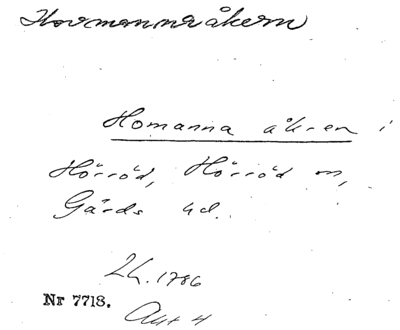 Hovmannaåkern
Homanna åkren i
Hörröd, Hörröd sn,
Gärds hd.
Lh. 1786
Nr 7718.
Akt 4